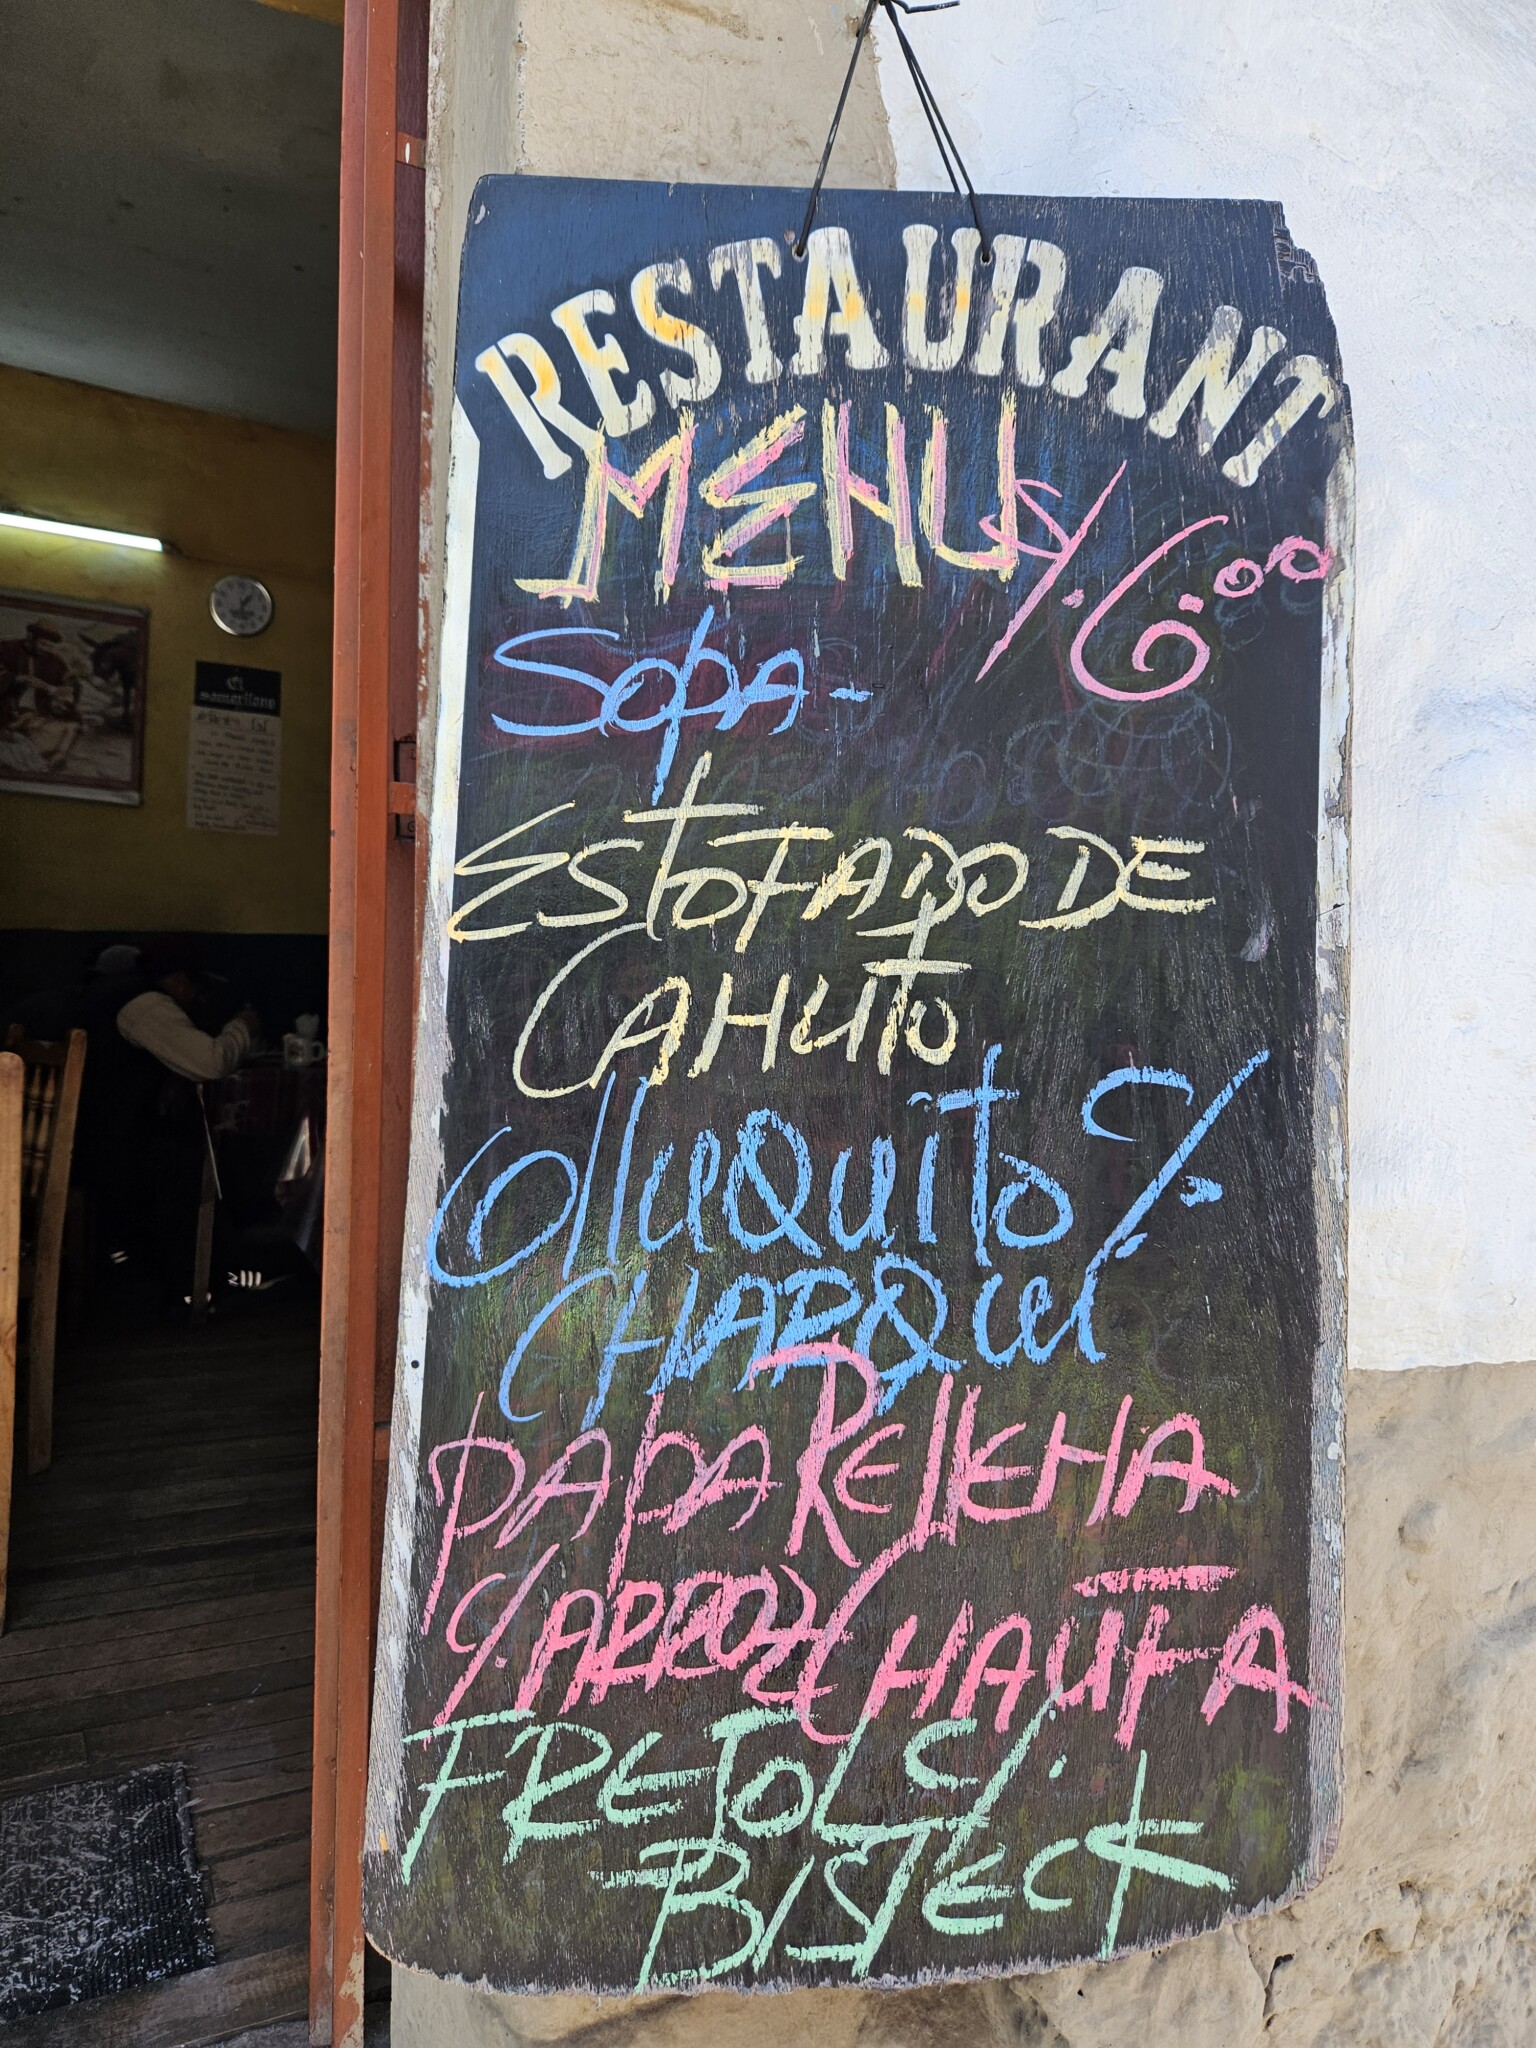 RESTAURANT
MENU S/. 6.00
SOPA-
ESTOFADO DE
CAHUTO
OlluQuito c/.
CHARQui
PAPA RELLENA
c/. ARROZ CHAUFA
FREJOL c/.
BISTECK
El
samaritano